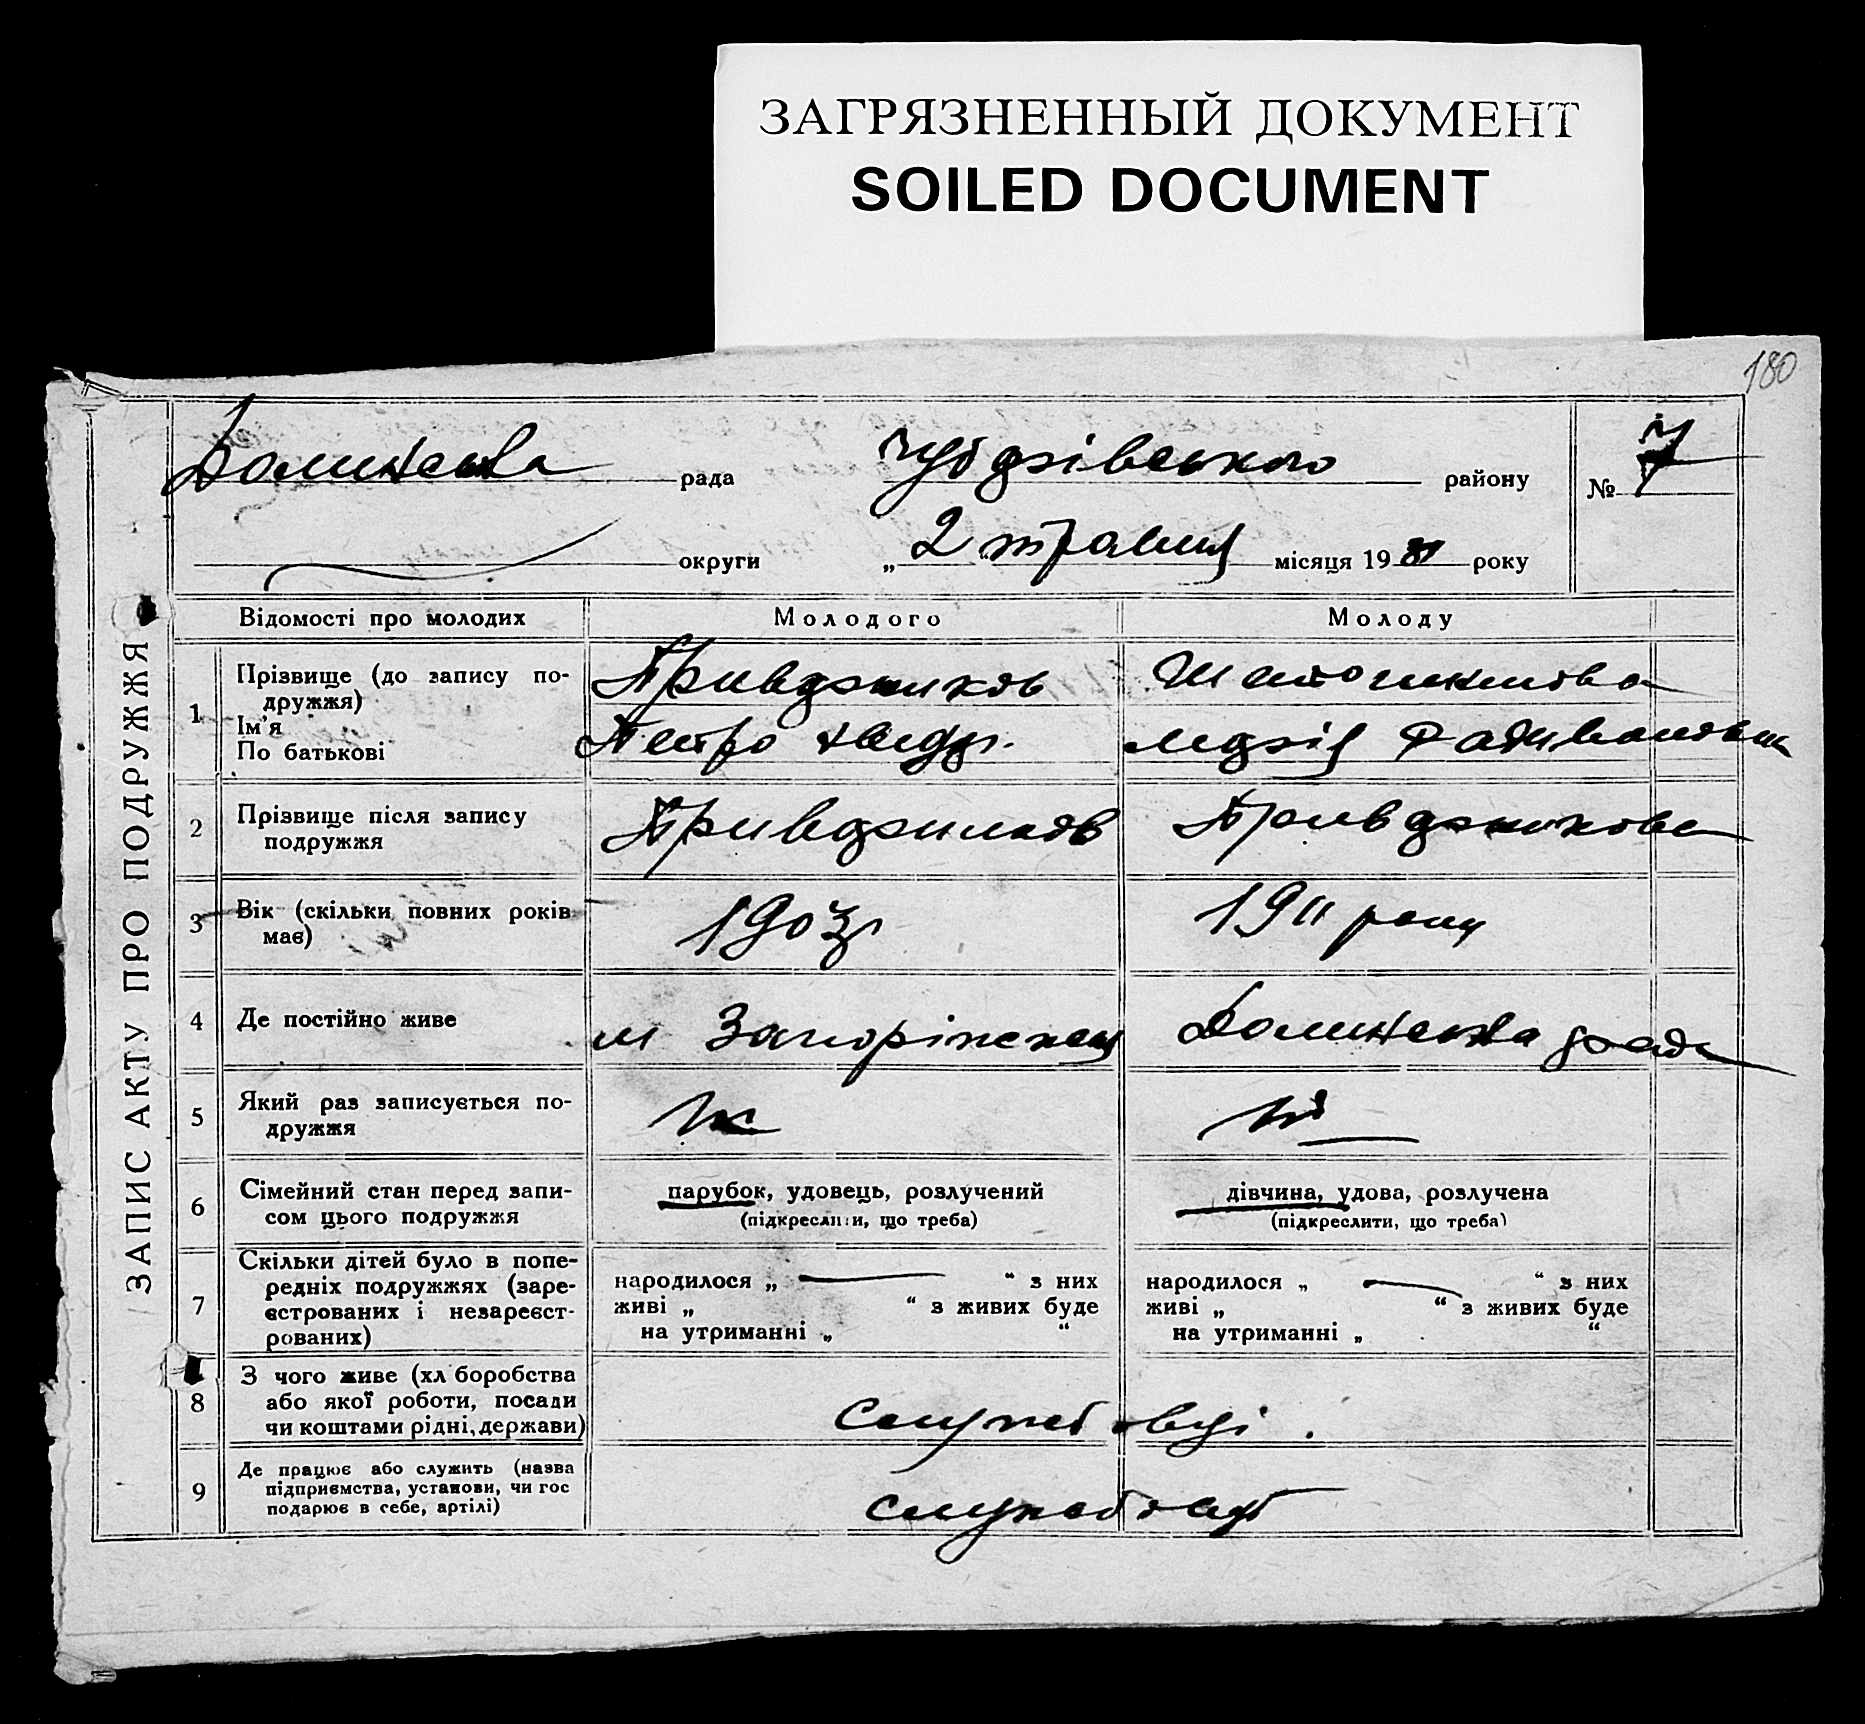 ЗАГРЯЗНЕННЫЙ ДОКУМЕНТ
SOILED DOCUMENT
180
ЗАПИС АКТУ ПРО ПОДРУЖЖЯ
Долинська рада району № 7
округи „ 2 травня місяця 1931 року
Відомості про молодих Молодого Молоду
1 Прізвище (до запису по-
дружжя)
Ім'я
По батькові
Петро
2 Прізвище після запису
подружжя
3 Вік (скільки повних років
має)
1903р 1911 року
4 Де постійно живе
м Долинська рада
5 Який раз записується по-
дружжя
6 Сімейний стан перед запи-
сом цього подружжя
парубок, удовець, розлучений
(підкреслити, що треба)
дівчина, удова, розлучена
(підкреслити, що треба)
7 Скільки дітей було в попе-
редніх подружжях (заре-
єстрованих і незареєст-
рованих)
народилося „ — “ з них
живі „ “ з живих буде
на утриманні „ “
народилося „ — “ з них
живі „ “ з живих буде
на утриманні „ “
8 З чого живе (хл боробства
або якої роботи, посади
чи коштами рідні, держави)
службовці.
9 Де працює або служить (назва
підприємства, установи, чи гос
подарює в себе, артілі)